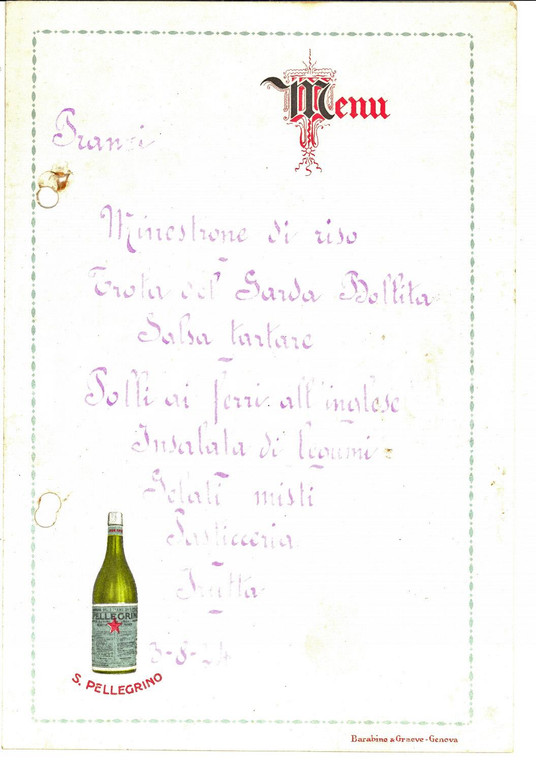 Menu
Pranzi
Minestrone di riso
Trota del Garda Bollita
Salsa tartare
Polli ai ferri all'inglese
Insalata di legumi
Gelati misti
Pasticceria
Frutta
PELLEGRINO
S. PELLEGRINO
Barabino & Graeve - Genova